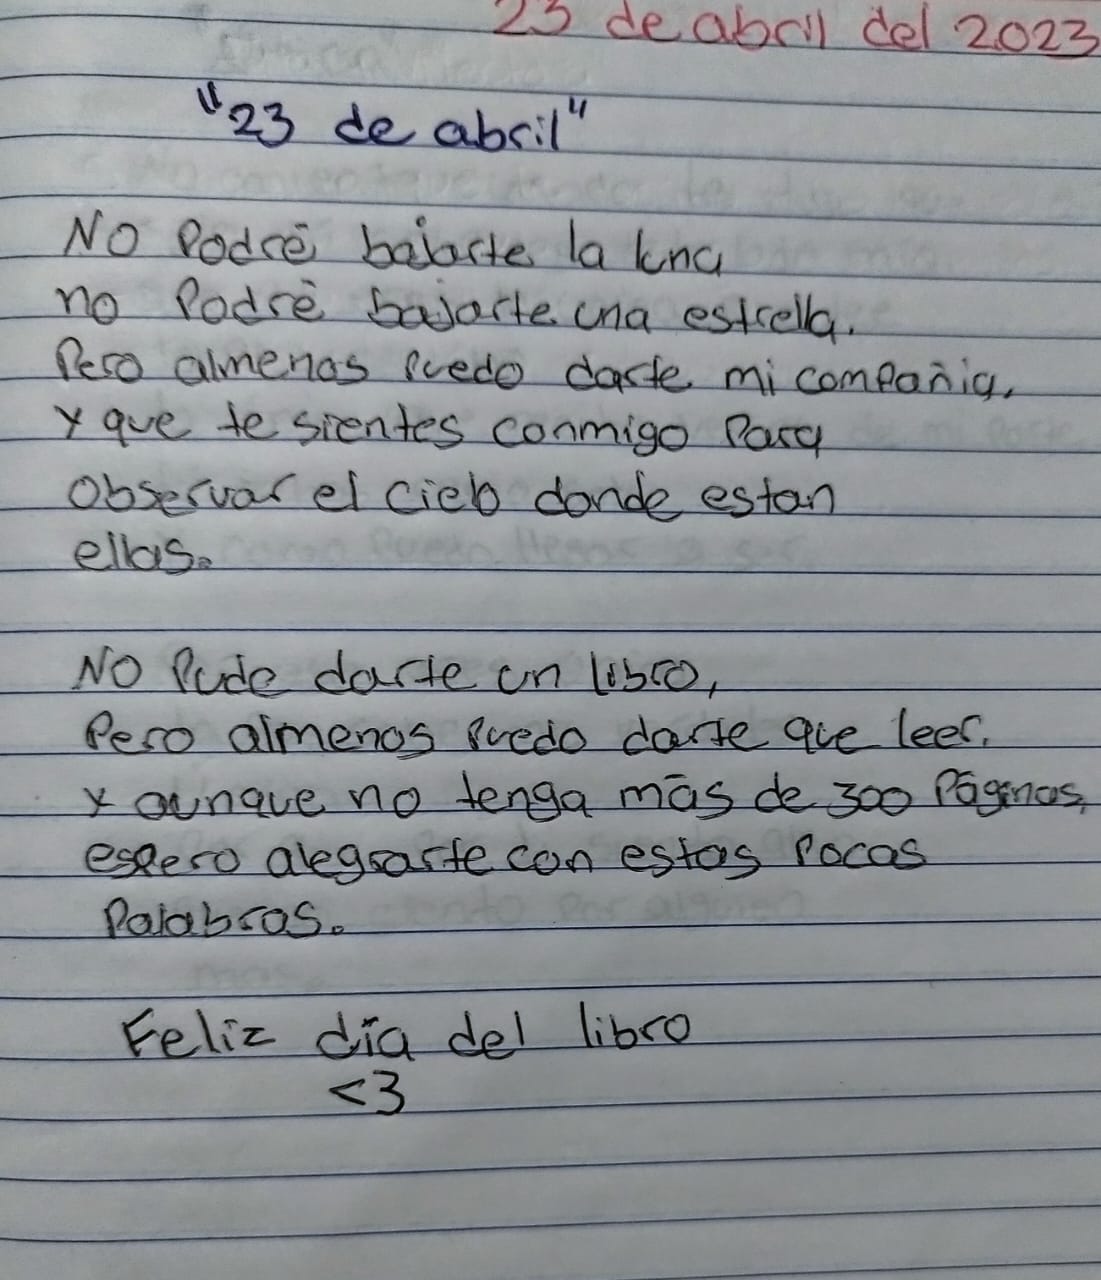 23 de abril del 2023
"23 de abril"
No Podré bajarte la luna
no Podré bajarte una estrella.
Pero almenos Puedo darte mi compañia,
y que te sientes conmigo Para
observar el cielo donde estan
ellas.
No Pude darte un libro,
Pero almenos Puedo darte que leer.
y aunque no tenga más de 300 Páginas,
espero alegrarte con estas Pocas
Palabras.
Feliz día del libro
<3